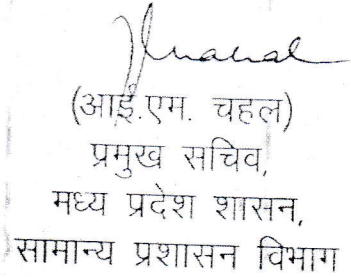 (आई.एम. चहल)
प्रमुख सचिव,
मध्य प्रदेश शासन,
सामान्य प्रशासन विभाग